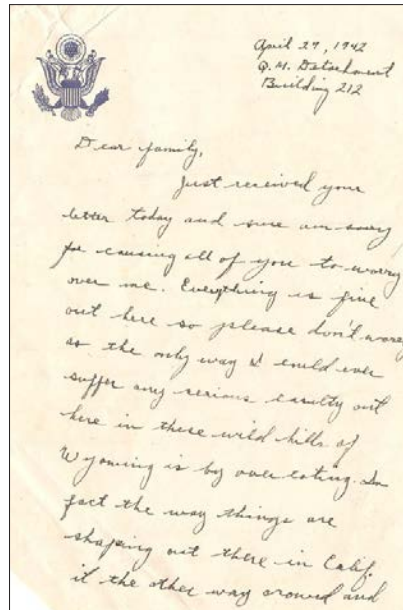 April 27, 1942
Q.M. Detachment
Building 212
Dear family,
Just received your
letter today and sure am sorry
for causing all of you to worry
over me. Everything is fine
out here so please don't worry
as the only way I could ever
suffer any serious casulty out
here in these wild hills of
Wyoming is by over eating. In
fact the way things are
shaping out there in Calif.
it the other way around and